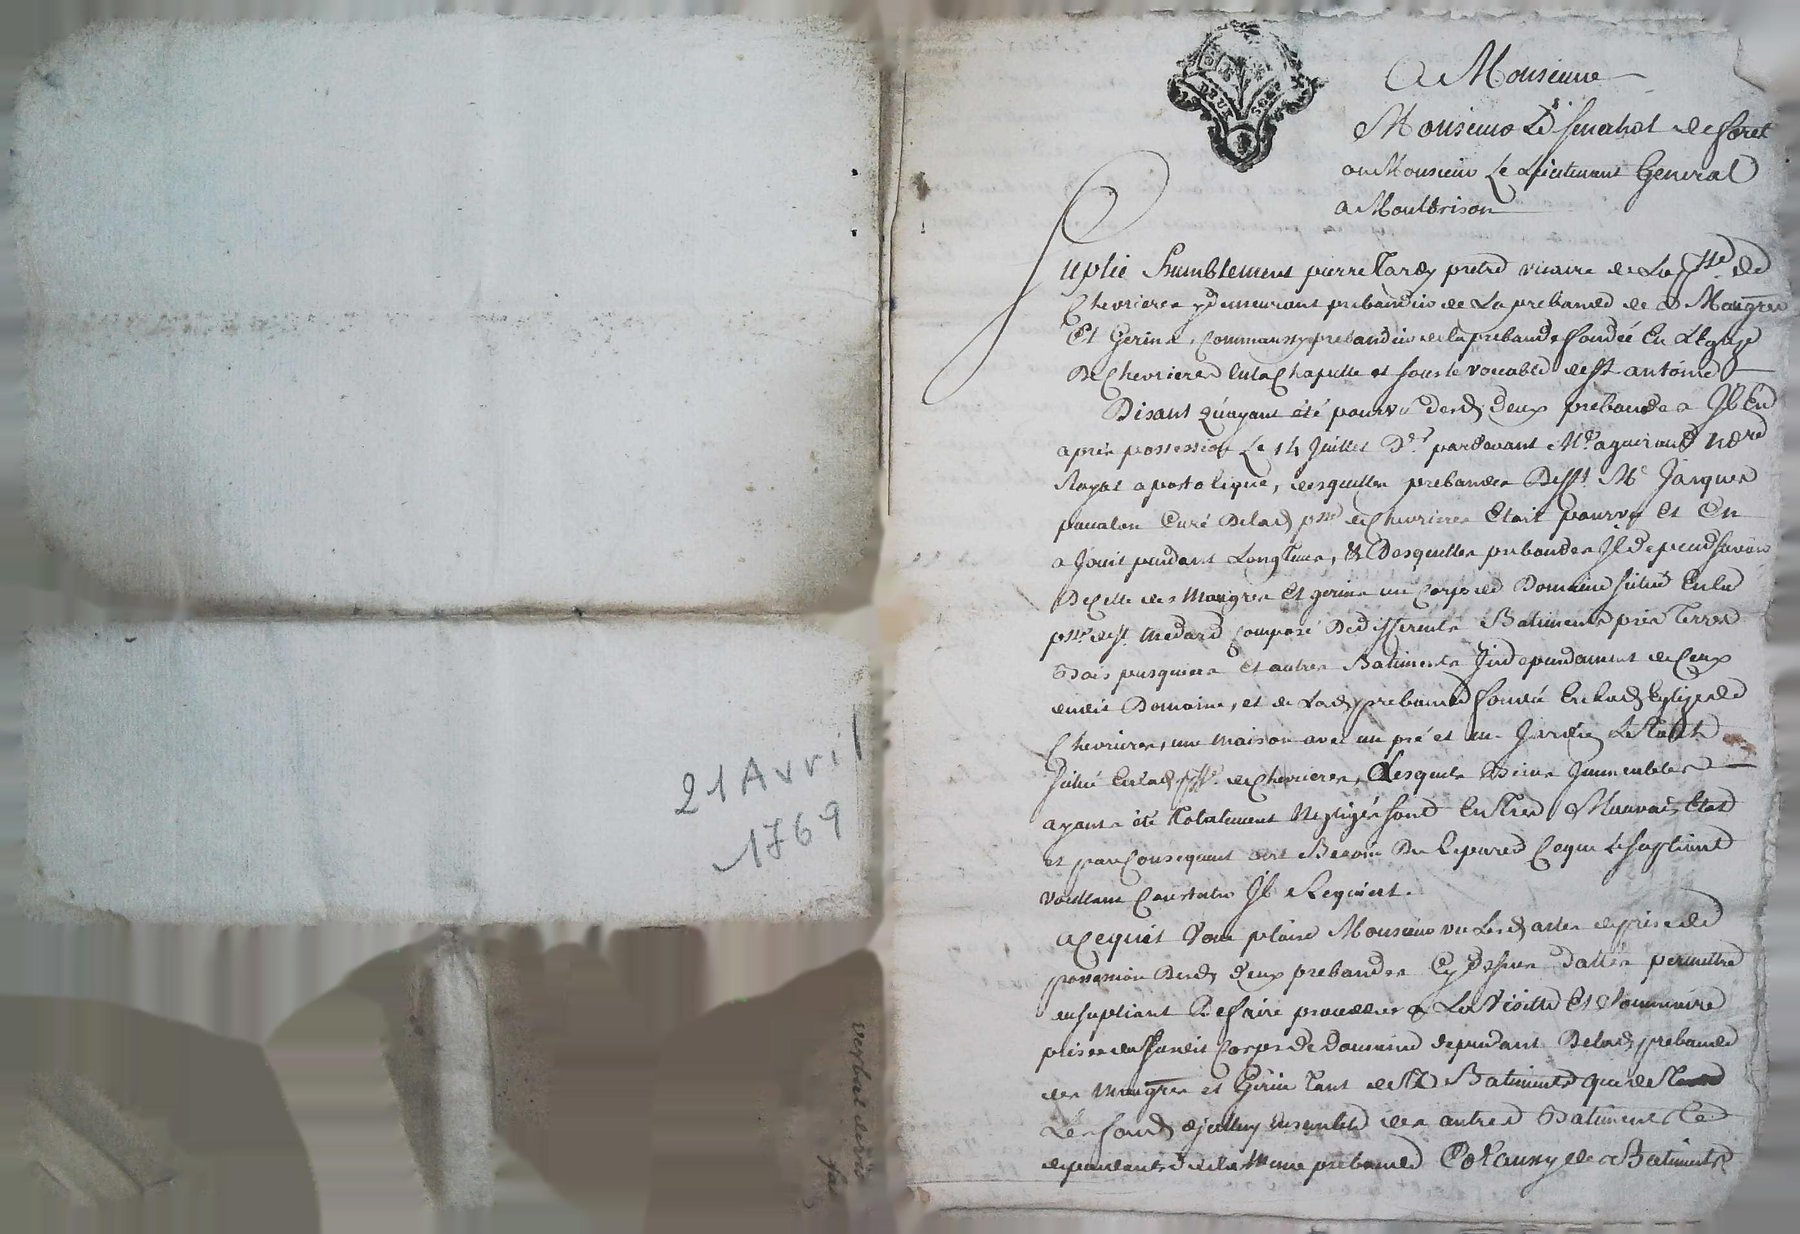 21 Avril
1769
verbal de
DEUX SOLS
A Monsieur
Monsieur Le senechal de forest
ou Monsieur Le Lieutenant General
a Montbrison
Suplie humblement pierre Tardy pretre vicaire de La psse de
Chevrieres y demeurant prebandier de La prebande des Maugres
Et Gerins, Comme aussy prebandier de la prebande fondée En Leglize
De Chevrieres En la Chapelle et sous le vocable de st antoine
Disant qu'ayant été pourvu desd deux prebandes Il En
a pris possession Le 14 Juillet Der pardevant Me aguiraud nore
Royal apostolique, desquelles prebandes Defft Me Jacques
Curé De lad psse de Chevrieres Etoit pourvu Et En
a Jouit pendant Longtems, & Desquelles prebandes Il depend savoir
De Celle des Maugres Et gerins un Corps de Domaine situé En la
psse de st medard Composé De differents Batiments prés Terres
Bois pasquiers et autres Batiments Independament de Ceux
dudit Domaine, et de Lad prebande fondée En lad Eglize de
Chevrieres, une maison avec un pré et un Jardin Le tout
situé En lad psse de Chevrieres, Lesquels Biens Immeubles
ayants été totalement Negligés sont En tres Mauvais Etat
et par Consequent ont Besoin De Reparer Ce que Le supliant
voulant Constater Il Requiert.
A Ce qu'il Vous plaise Monsieur vu Lesd actes de prise de
possession Desd deux prebandes Cy dessus dattés permettre
au supliant De faire proceder a La Visitte Et Sommaire
prise dudit Corps de domaine dependant De lad prebande
des Maugres et Gerin tant des Batiments que des
Les fonds d'Jcelluy Ensemble des autres Batiments
dependants de la Meme prebande Et aussy des Batiments